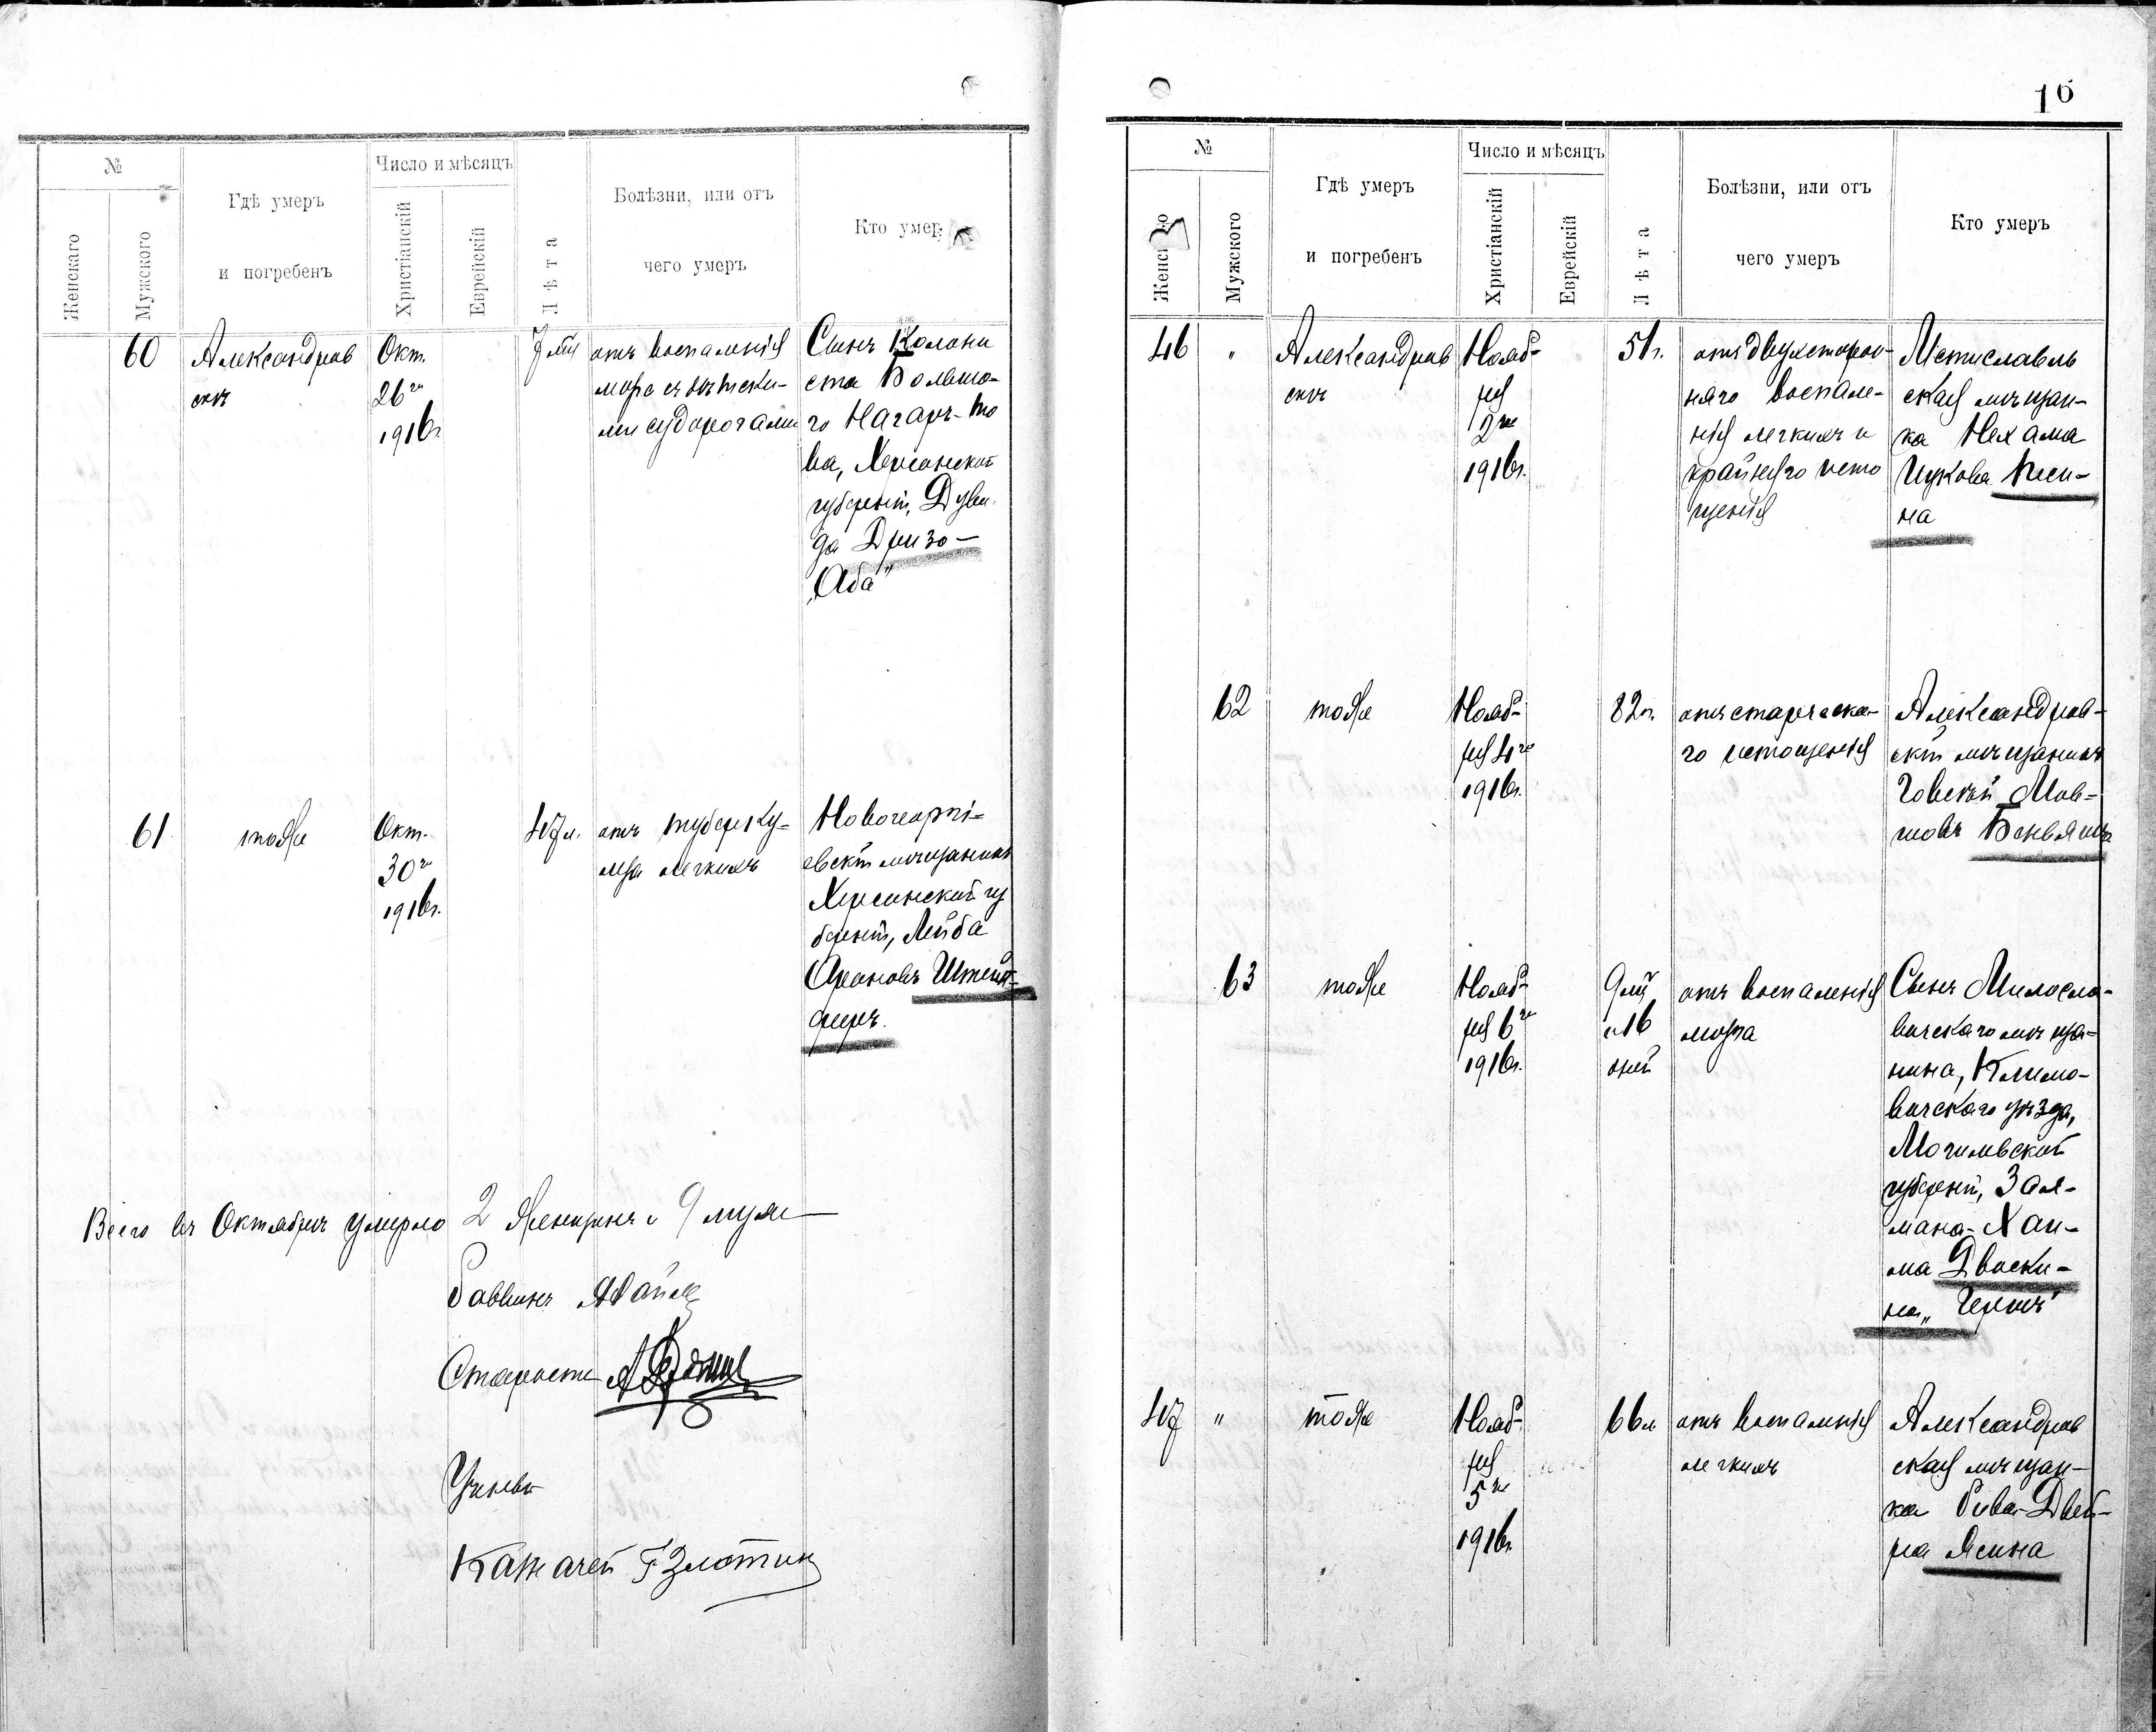 №
Число и мѣсяцъ
Женскаго
Мужского
Гдѣ умеръ
и погребенъ
Христіанскій
Еврейскій
Лѣта
Болѣзни, или отъ
чего умеръ
Кто умер
60
Александров
скъ
Окт.
26го
1916г.
отъ воспаленія
ми судорогами
Сынъ Колони
ста Большо-
го Нагаръ-то
ва, Херсонской
губерніи, Дуви
да Дризо-
"Аба"
61
тоже
Окт.
30го
1916г.
47л.
отъ туберку-
леза легкихъ
Новогеоргі-
евскій мѣщанинъ
Херсонской гу
берніи, Лейба
Ароновъ Штейн-
феръ.
Всего въ Октябрѣ умерло 2 женщинъ и 9 муж
Раввинъ
Староста
Ученый
Казначей Г Злотин
16
№
Число и мѣсяцъ
Мужского
Гдѣ умеръ
и погребенъ
Христіанскій
Еврейскій
Лѣта
Болѣзни, или отъ
чего умеръ
Кто умеръ
46
"
Александров
скъ
Нояб-
ря
2го
1916г.
51г.
отъ двухсторон-
няго воспале-
нія легкихъ и
крайняго исто
щенія
Мстиславль
ская мѣщан-
ка Нехама
Ицкова Песи-
на
62
тоже
Нояб-
ря 4го
1916г.
82г.
отъ старческа-
го истощенія
Александров-
скій мѣщанинъ
Мов-
шовъ
63
тоже
Нояб-
ря 6го
1916г.
9 м
и 16
дней
отъ воспаленія
мозга
Сынъ Милосла-
вичскаго мѣща-
нина, Климо-
вичскаго уѣзда,
Могилевской
губерніи, Зал-
мана-Хаи-
ма Двоски-
на
47
"
тоже
Нояб-
ря
5го
1916г.
66л
отъ воспаленія
легкихъ
Александров
ская мѣщан-
ка Рива-Двей-
ра Ясина